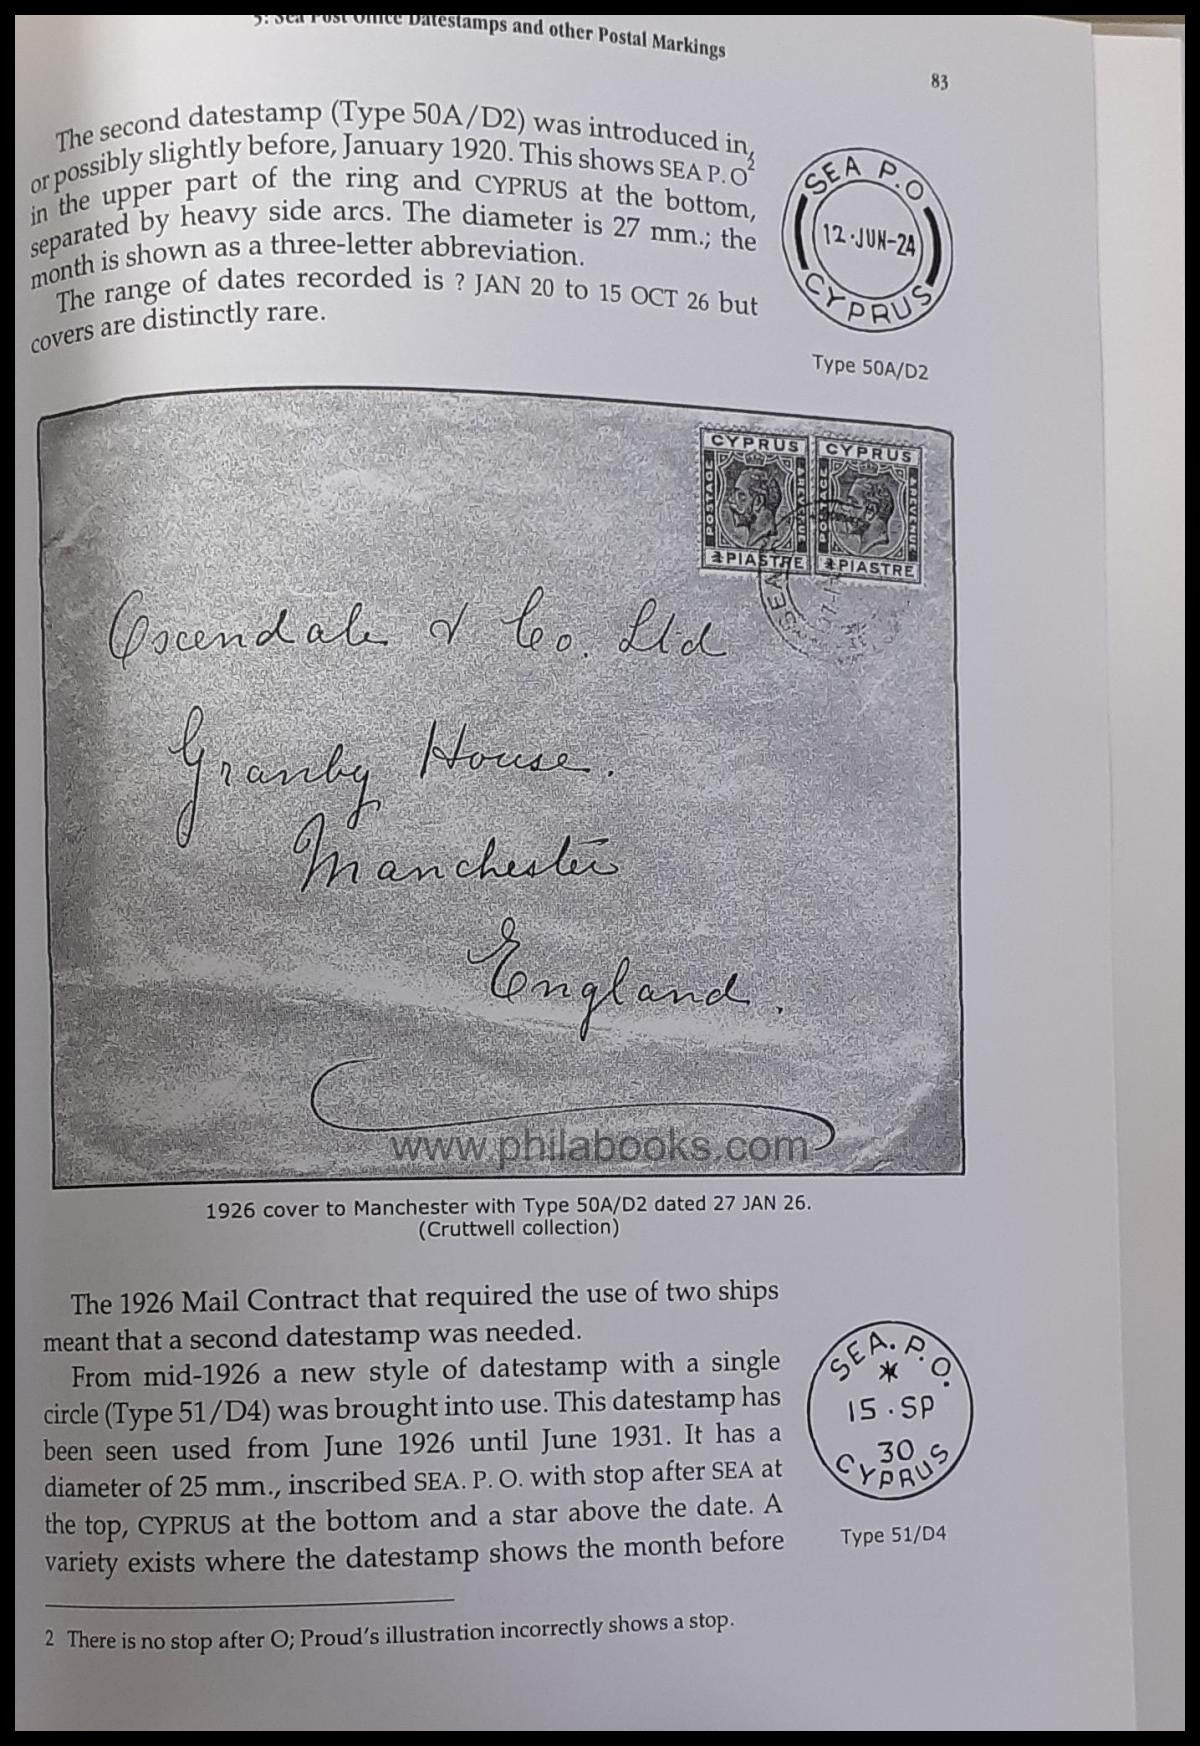 5: Sea Post Office Datestamps and other Postal Markings
83
The second datestamp (Type 50A/D2) was introduced in,
or possibly slightly before, January 1920. This shows SEA P. O²
in the upper part of the ring and CYPRUS at the bottom,
separated by heavy side arcs. The diameter is 27 mm.; the
month is shown as a three-letter abbreviation.
The range of dates recorded is ? JAN 20 to 15 OCT 26 but
covers are distinctly rare.
SEA P.O
12·JUN-24
CYPRUS
Type 50A/D2
CYPRUS
POSTAGE
REVENUE
PIASTRE
CYPRUS
POSTAGE
REVENUE
PIASTRE
SEA
& Co. Ltd
Granby House.
Manchester
England.
www.philabooks.com
1926 cover to Manchester with Type 50A/D2 dated 27 JAN 26.
(Cruttwell collection)
The 1926 Mail Contract that required the use of two ships
meant that a second datestamp was needed.
From mid-1926 a new style of datestamp with a single
circle (Type 51/D4) was brought into use. This datestamp has
been seen used from June 1926 until June 1931. It has a
diameter of 25 mm., inscribed SEA. P. O. with stop after SEA at
the top, CYPRUS at the bottom and a star above the date. A
variety exists where the datestamp shows the month before
SEA. P. O.
*
15 · SP
30
CYPRUS
Type 51/D4
2 There is no stop after O; Proud's illustration incorrectly shows a stop.